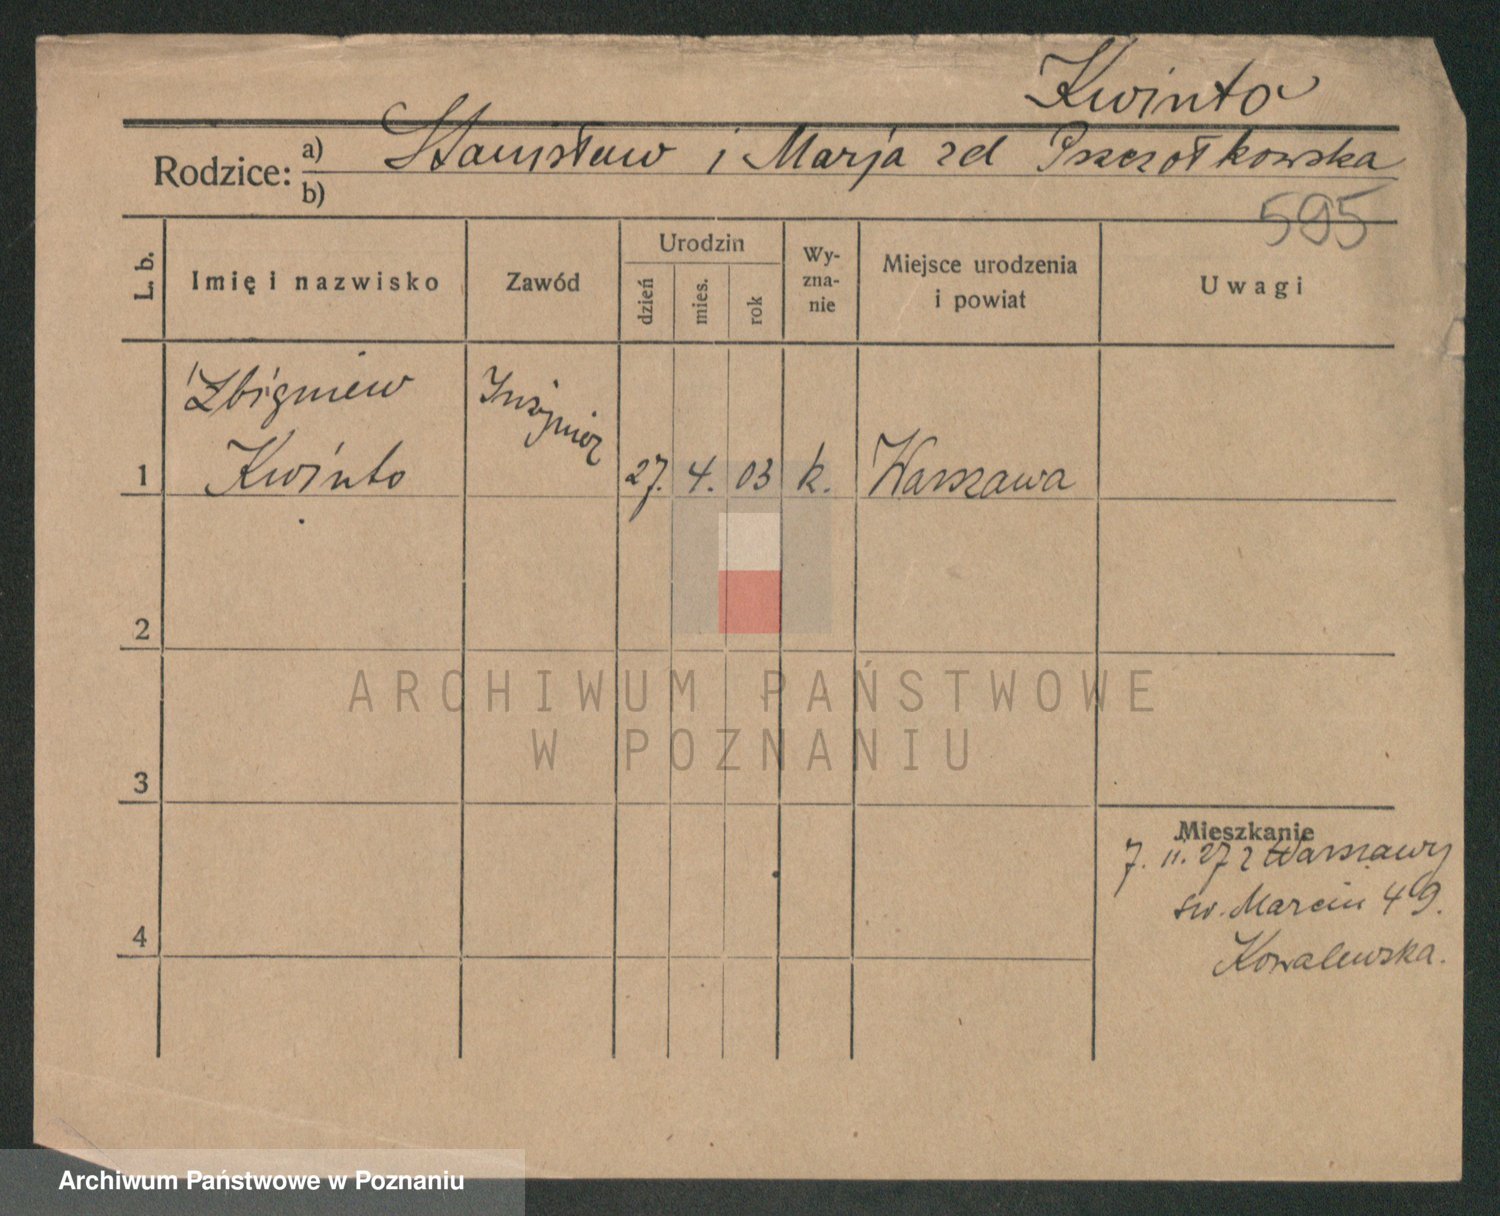 Kwinto
Rodzice: a) Stanisław i Marja zd Pszczołkowska
b)
595
L. b.
Imię i nazwisko
Zawód
Urodzin
dzień
mies.
rok
Wy-
zna-
nie
Miejsce urodzenia
i powiat
Uwagi
Zbigniew
Inżynier
1 Kwinto 27. 4. 03 k. Warszawa
2
ARCHIWUM PAŃSTWOWE
W POZNANIU
3
Mieszkanie
7. 11. 27 z Warszawy
św. Marcin 49.
4
Kowalewska.
Archiwum Państwowe w Poznaniu